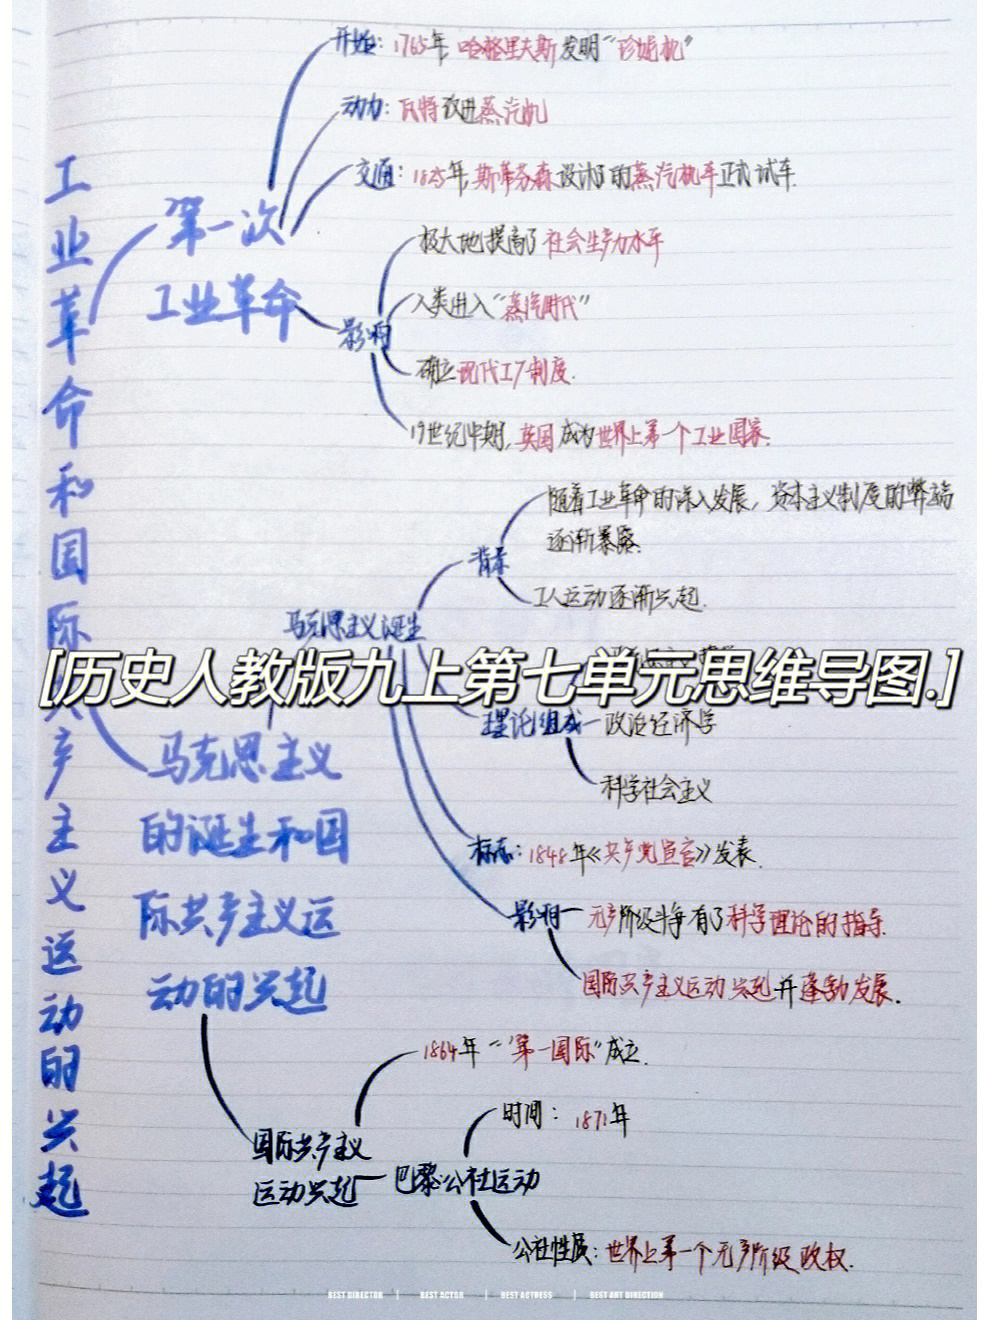 工业革命和国际共产主义运动的兴起
第一次
工业革命
开始：1765年，哈格里夫斯发明“珍妮机”
动力：瓦特改进蒸汽机
交通：1825年，斯蒂芬森设计的蒸汽机车正式试车.
影响
极大地提高了社会生产力水平
人类进入“蒸汽时代”
确立现代工厂制度.
19世纪中期，英国成为世界上第一个工业国家.
马克思主义
的诞生和国
际共产主义运
动的兴起
马克思主义诞生
背景
随着工业革命的深入发展，资本主义制度的弊端
逐渐暴露.
工人运动逐渐兴起.
[历史人教版九上第七单元思维导图.]
理论组成
政治经济学
科学社会主义
标志：1848年《共产党宣言》发表.
影响
无产阶级斗争有了科学理论的指导.
国际共产主义运动兴起并蓬勃发展.
国际共产主义
运动兴起
1864年“第一国际”成立.
巴黎公社运动
时间：1871年
公社性质：世界上第一个无产阶级政权.
BEST DIRECTOR | BEST ACTOR | BEST ACTRESS | BEST ART DIRECTION